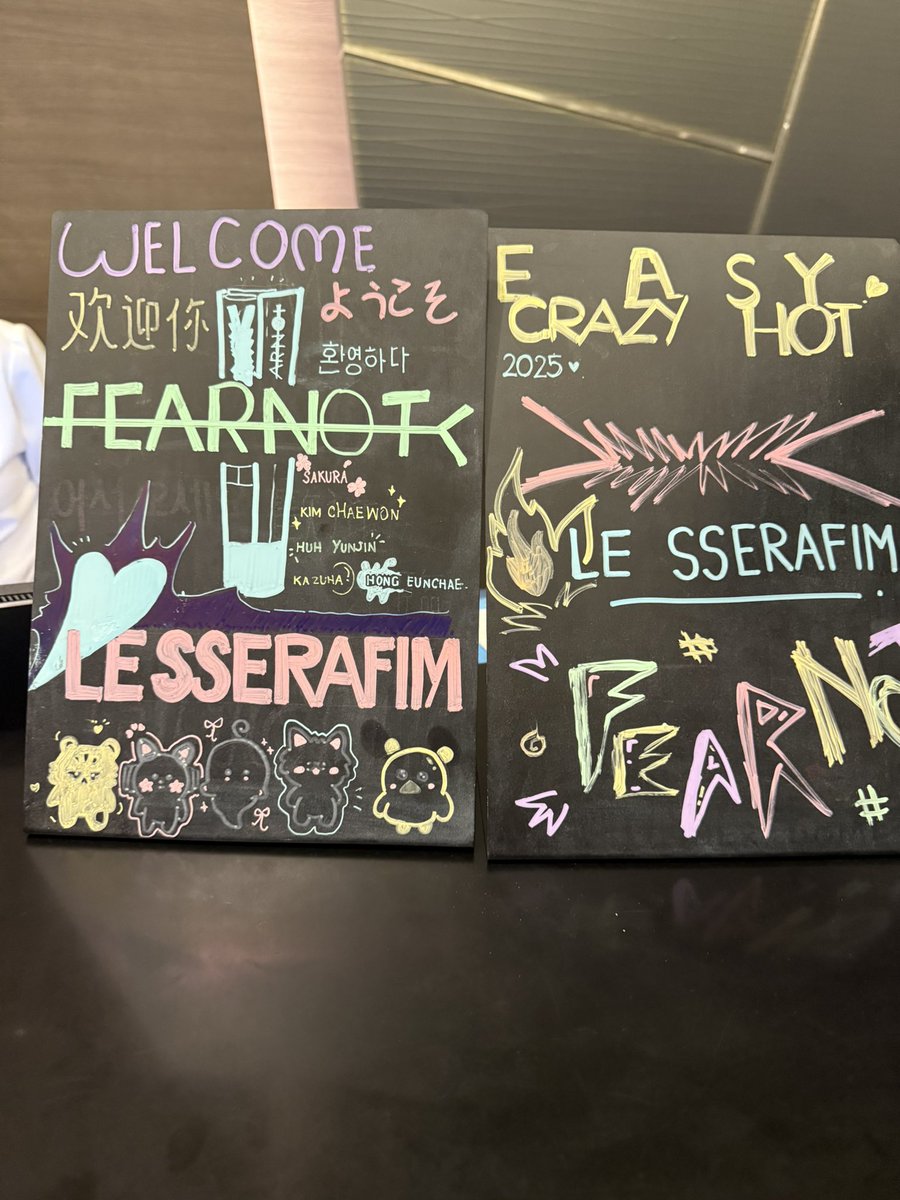 WELCOME
欢迎你
ようこそ
환영하다
FEARNOT
SAKURA
KIM CHAEWON
HUH YUNJIN
KAZUHA
HONG EUNCHAE
LE SSERAFIM
EASY
CRAZY HOT
2025
LE SSERAFIM
#
FEARNO
#